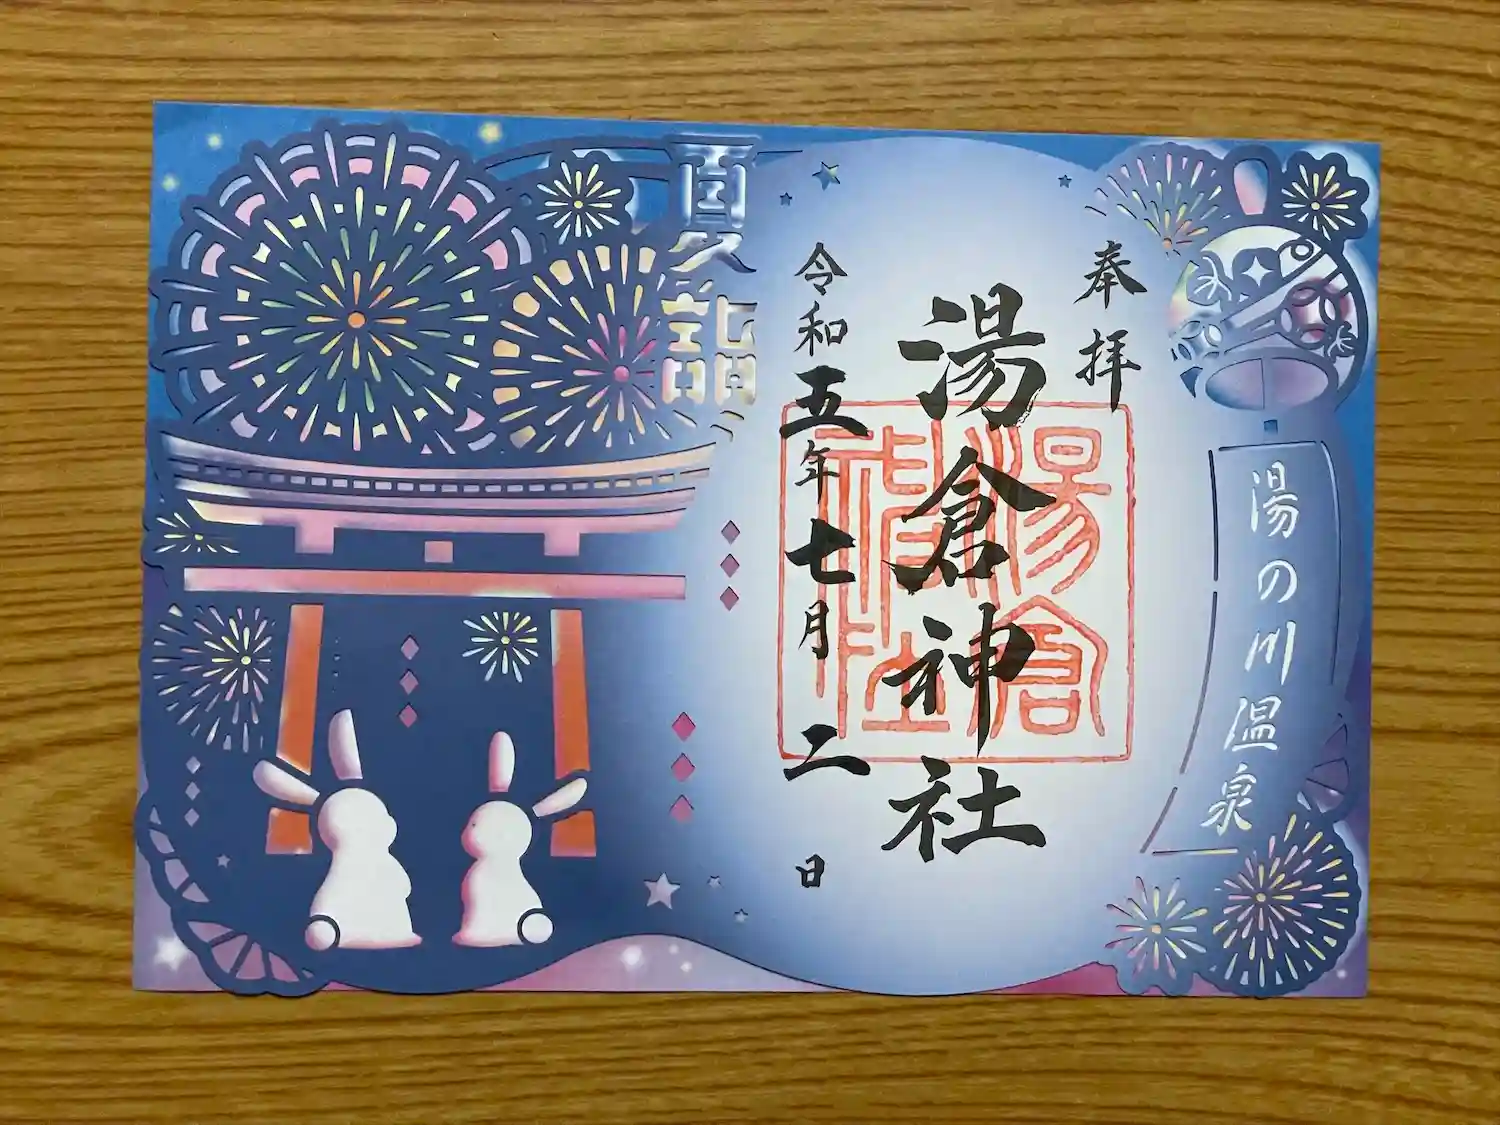 奉拝
湯倉神社
湯倉神社
令和五年七月二日
夏詣
湯の川温泉